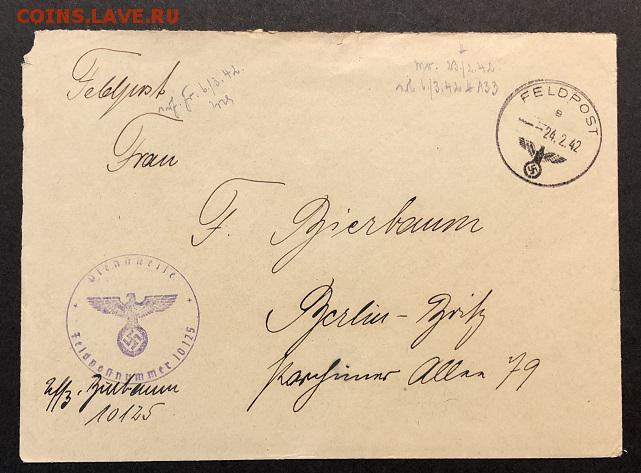 COINS.LAVE.RU
Feldpost
Frau
F. Bierbaum
Berlin-Britz
Parchimer Allee 79
FELDPOST
e
24.2.42
Dienststelle
Feldpostnummer 10125
Uffz. Bierbaum
10125
6/3.42.
23/2.42.
6/3.42